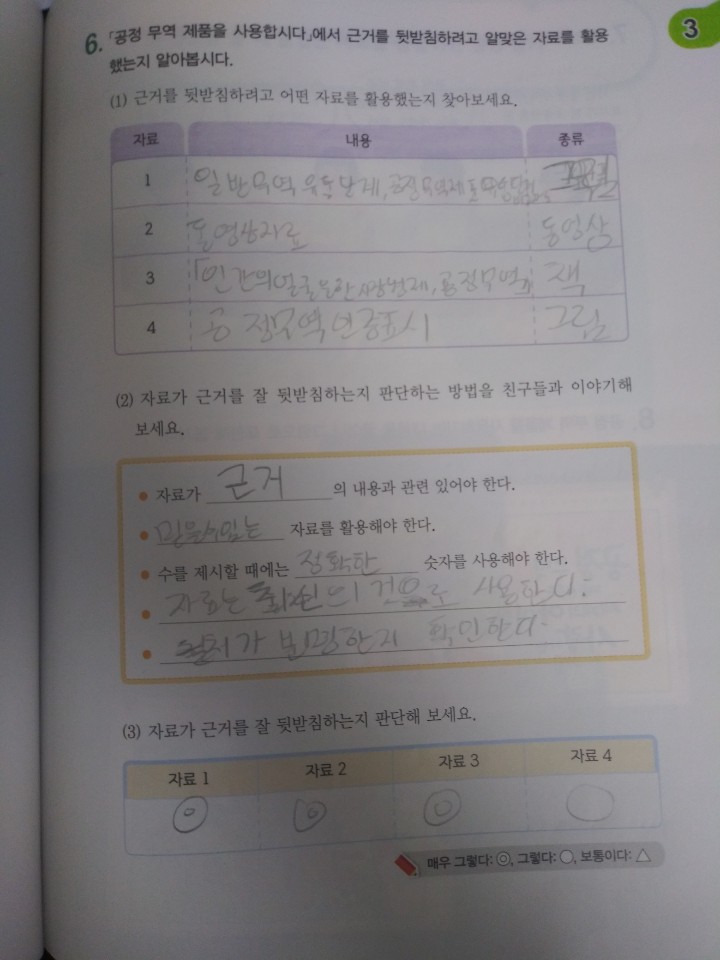 3
6. 「공정 무역 제품을 사용합시다」에서 근거를 뒷받침하려고 알맞은 자료를 활용
했는지 알아봅시다.
(1) 근거를 뒷받침하려고 어떤 자료를 활용했는지 찾아보세요.
자료 내용 종류
1 일반무역 유통단계, 공정무역
2 동영상자료 동영상
3 「인간의 얼굴을 한 시장 경제, 공정무역」 책
4 공정무역 인증표시 그림
(2) 자료가 근거를 잘 뒷받침하는지 판단하는 방법을 친구들과 이야기해
보세요.
• 자료가 근거 의 내용과 관련 있어야 한다.
• 믿을수있는 자료를 활용해야 한다.
• 수를 제시할 때에는 정확한 숫자를 사용해야 한다.
• 자료는 최신의 것으로 사용한다.
• 출처가 분명한지 확인한다.
(3) 자료가 근거를 잘 뒷받침하는지 판단해 보세요.
자료 1 자료 2 자료 3 자료 4
◎ ◎ ◎ ○
매우 그렇다: ◎, 그렇다: ○, 보통이다: △